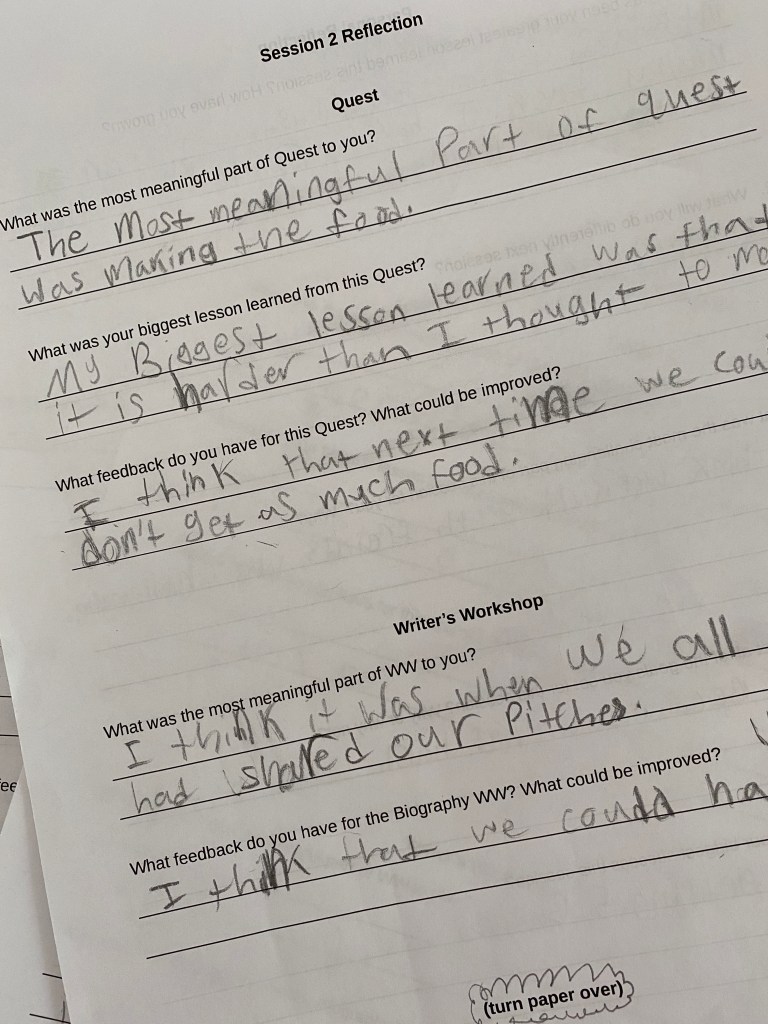 Session 2 Reflection
Quest
What was the most meaningful part of Quest to you?
The most meaningful Part of quest
was making the food.
What was your biggest lesson learned from this Quest?
My Biggest lesson learned was that
it is harder than I thought to
What feedback do you have for this Quest? What could be improved?
I think that next time we
don't get as much food.
Writer's Workshop
What was the most meaningful part of WW to you?
I think it was when we all
had shared our Pitches.
What feedback do you have for the Biography WW? What could be improved?
I think that we could
(turn paper over)